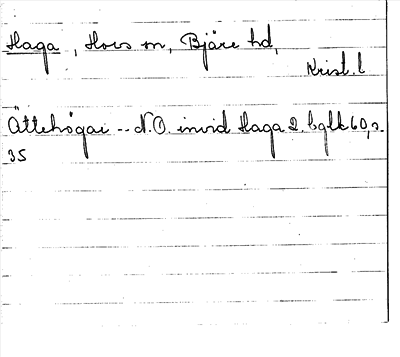 Haga, Hovs sn, Bjäre hd,
Krist. l
Ättehögar -- N.O. invid Haga 2. bglk 60, s.
35